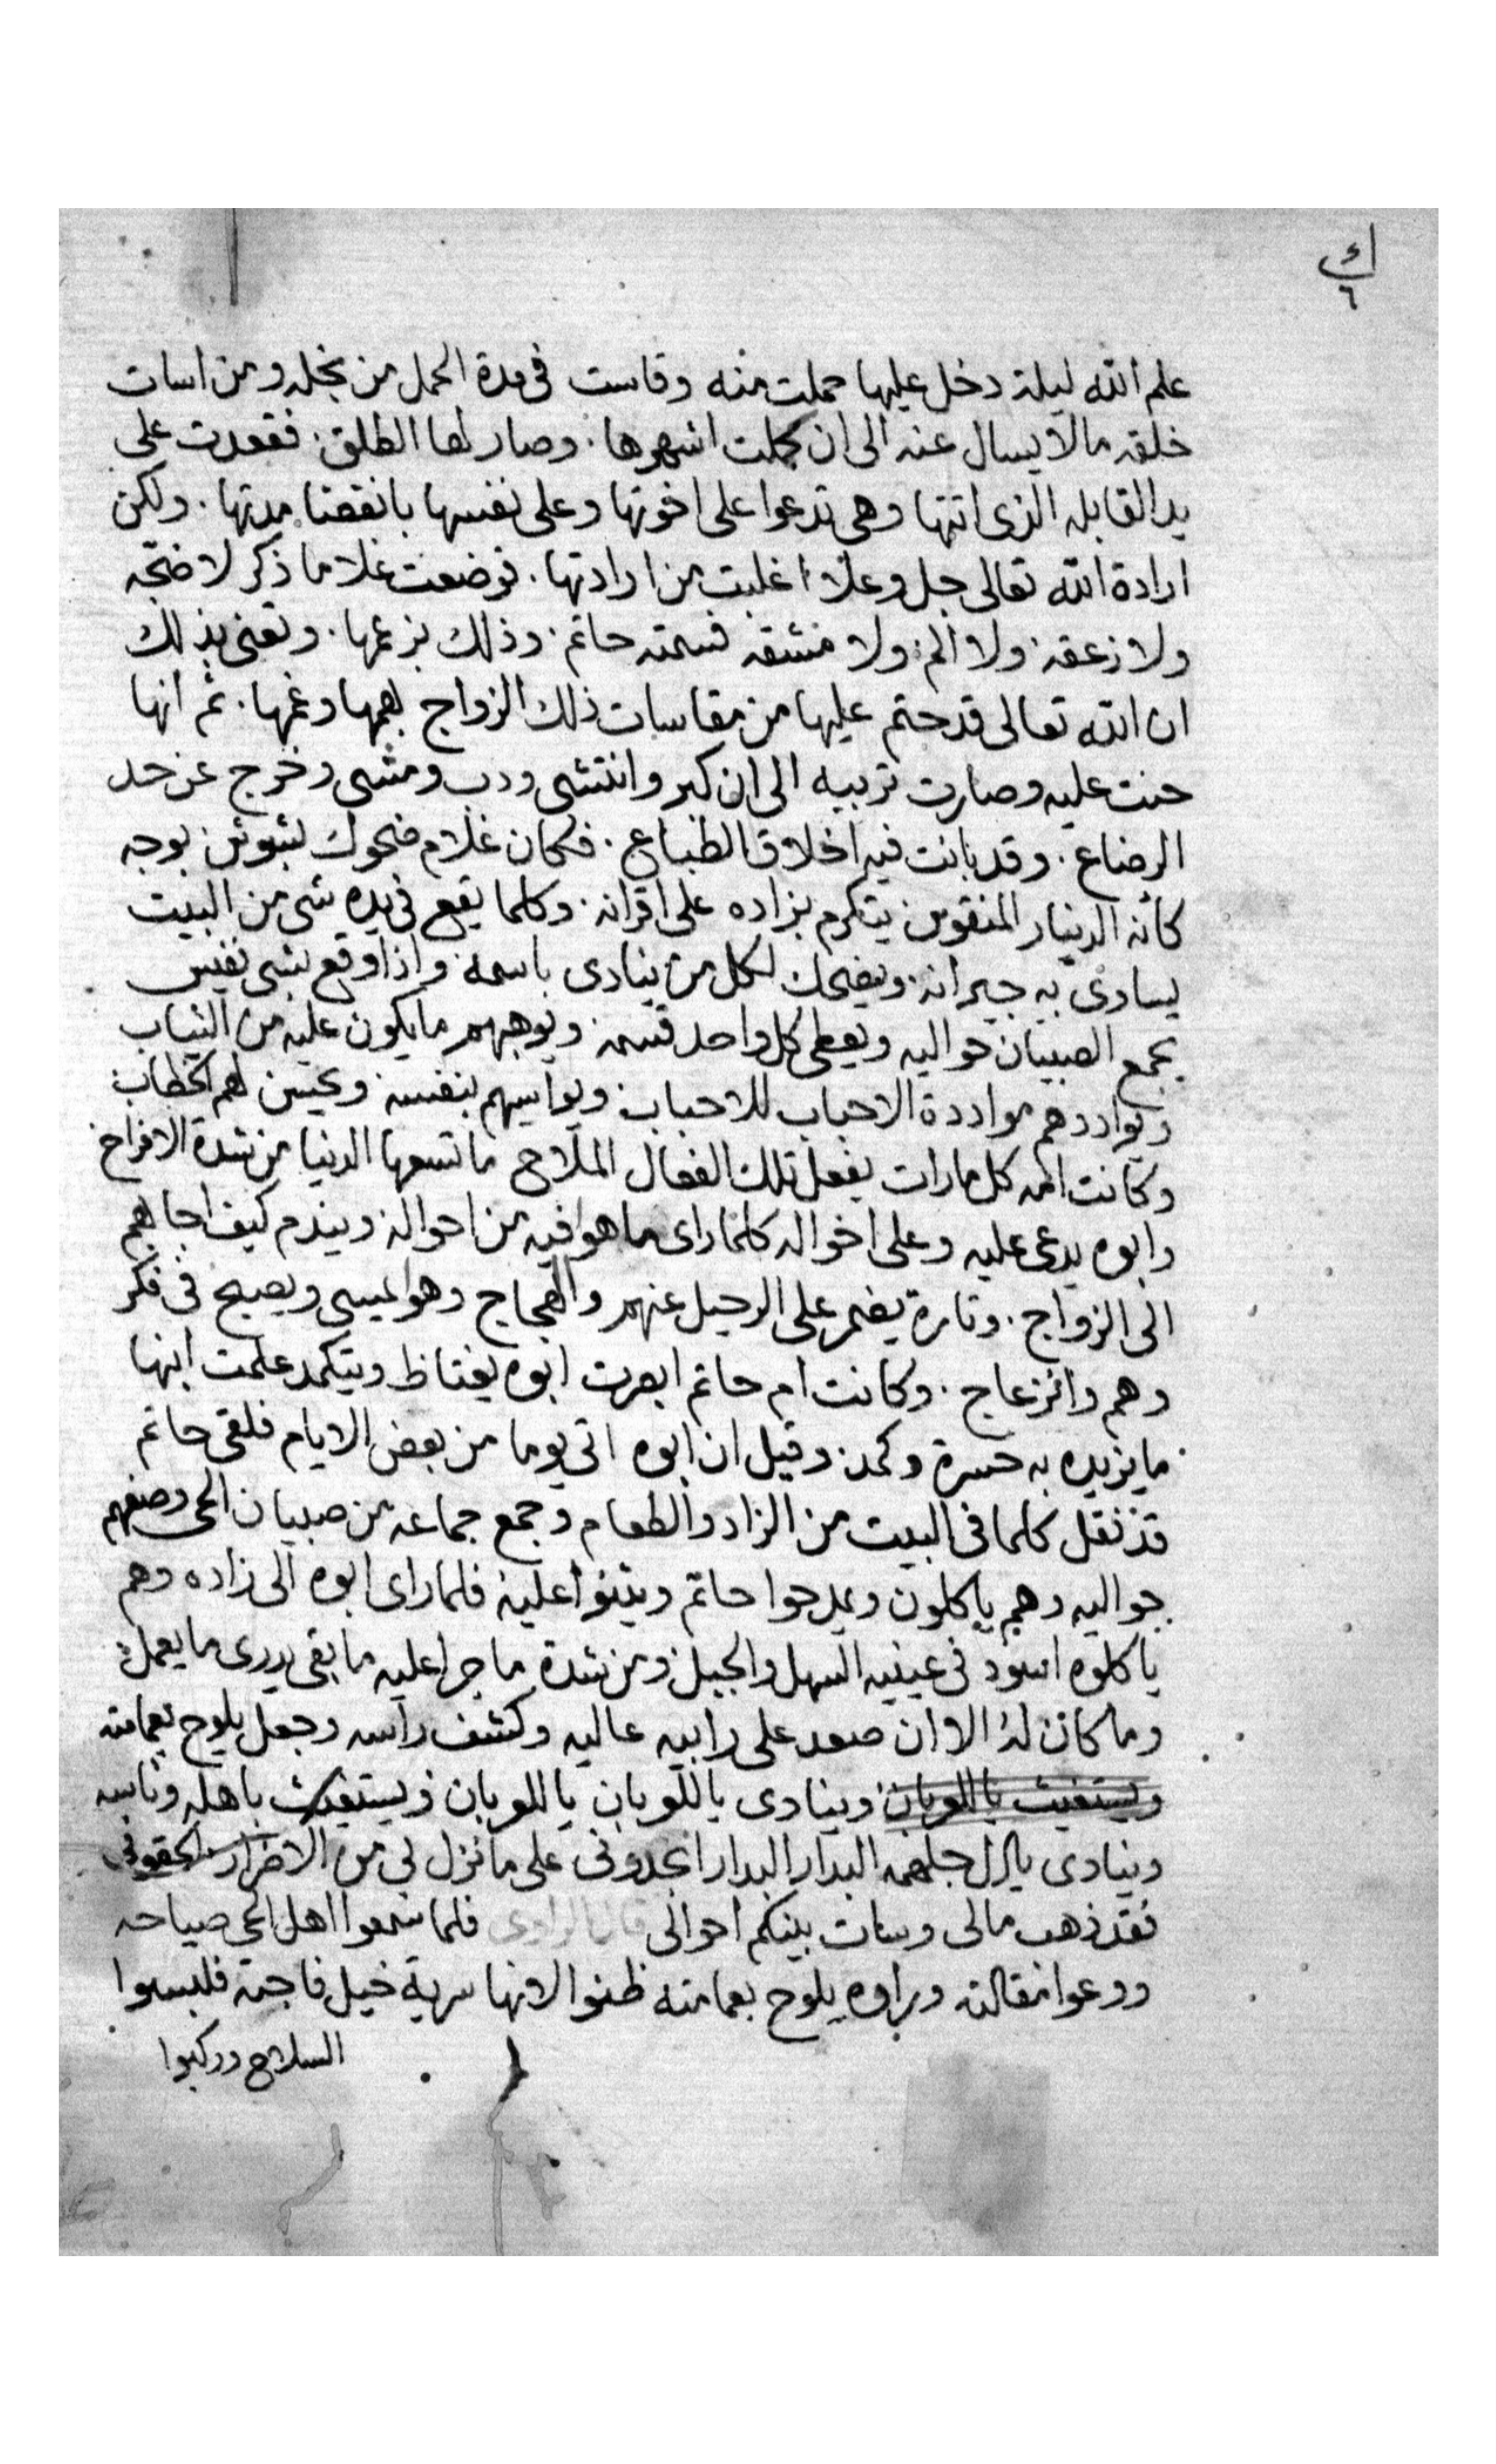 ك
٦
علم الله ليلة دخل عليها حملت منه وقاست فى مدة الحمل من بخله ومن اسات
خلقه مالا يسال عنه الى ان كملت اشهرها. وصار لها الطلق. فقعدت على
يد القابله الذى اتتها وهى تدعوا على اخوتها وعلى نفسها بانقضا مدتها. ولكن
ارادة الله تعالى جل وعلا اغلبت من ارادتها. فوضعت غلاما ذكر لا ضجه
ولا زعقه ولا الم ولا مشقه فسمته حاتم. وذلك بزعمها. وتعنى بذلك
ان الله تعالى قد حتم عليها من مقاسات ذلك الزواج بهمها وغمها. ثم انها
حنت عليه وصارت تربيه الى ان كبر وانتشى ودب ومشى وخرج عن حد
الرضاع. وقد بانت فيه اخلاق الطباع. فكان غلام ضحوك بشوش بوجه
كأنه الدينار المنقوش يتكرم بزاده على اقرانه. وكلما يقع فى يده شى من البيت
يساوى به جيرانه ويضحك لكل من ينادى باسمه واذا وقع بشى نفيس
يجمع الصبيان حواليه ويعطى كل واحد قسمه ويوهبهم مايكون عليه من الثياب
ويواددهم مواددة الاحباب للاحباب ويواسيهم بنفسه ويحسن لهم الخطاب
وكانت امه كل مارات يفعل تلك الفعال الملاح ماتسعها الدنيا من شدة الافراح
وابوه يدعى عليه وعلى اخواله كلما راى ما هو فيه من احواله ويندم كيف اجابهم
الى الزواج. وتارة يضمر على الرحيل عنهم والهجاج وهو يمسى ويصبح فى فكر
وهم وانزعاج. وكانت ام حاتم ابصرت ابوه يغتاظ ويتكمد علمت ابنها
ما يزيده به حسرة وكمد وقيل ان ابوه اتى يوما من بعض الايام فلقى حاتم
قد نقل كلما فى البيت من الزاد والطعام وجمع جماعه من صبيان الحى وصفهم
حواليه وهم ياكلون ويمدحوا حاتم ويثنوا عليه فلما راى ابوه الى زاده وهم
ياكلوه اسود فى عينيه السهل والجبل ومن شدة ما جرا عليه ما بقى يدرى ما يعمل
وما كان له الا ان صعد على رابيه عاليه وكشف راسه وجعل يلوح بعمامته
ويستغيث ياللوبان وينادى ياللوبان ياللوبان ويستغيث باهله وناسه
وينادى يال جلهمه البدار البدار انجدونى على ما نزل بى من الاضرار والحقونى
فقد ذهب مالى وسات بينكم احوالى قال الراوى فلما سمعوا اهل الحى صياحه
ووعوا مقالته وراوه يلوح بعمامته ظنوا لانها سرية خيل فاجته فلبسوا
السلاح وركبوا